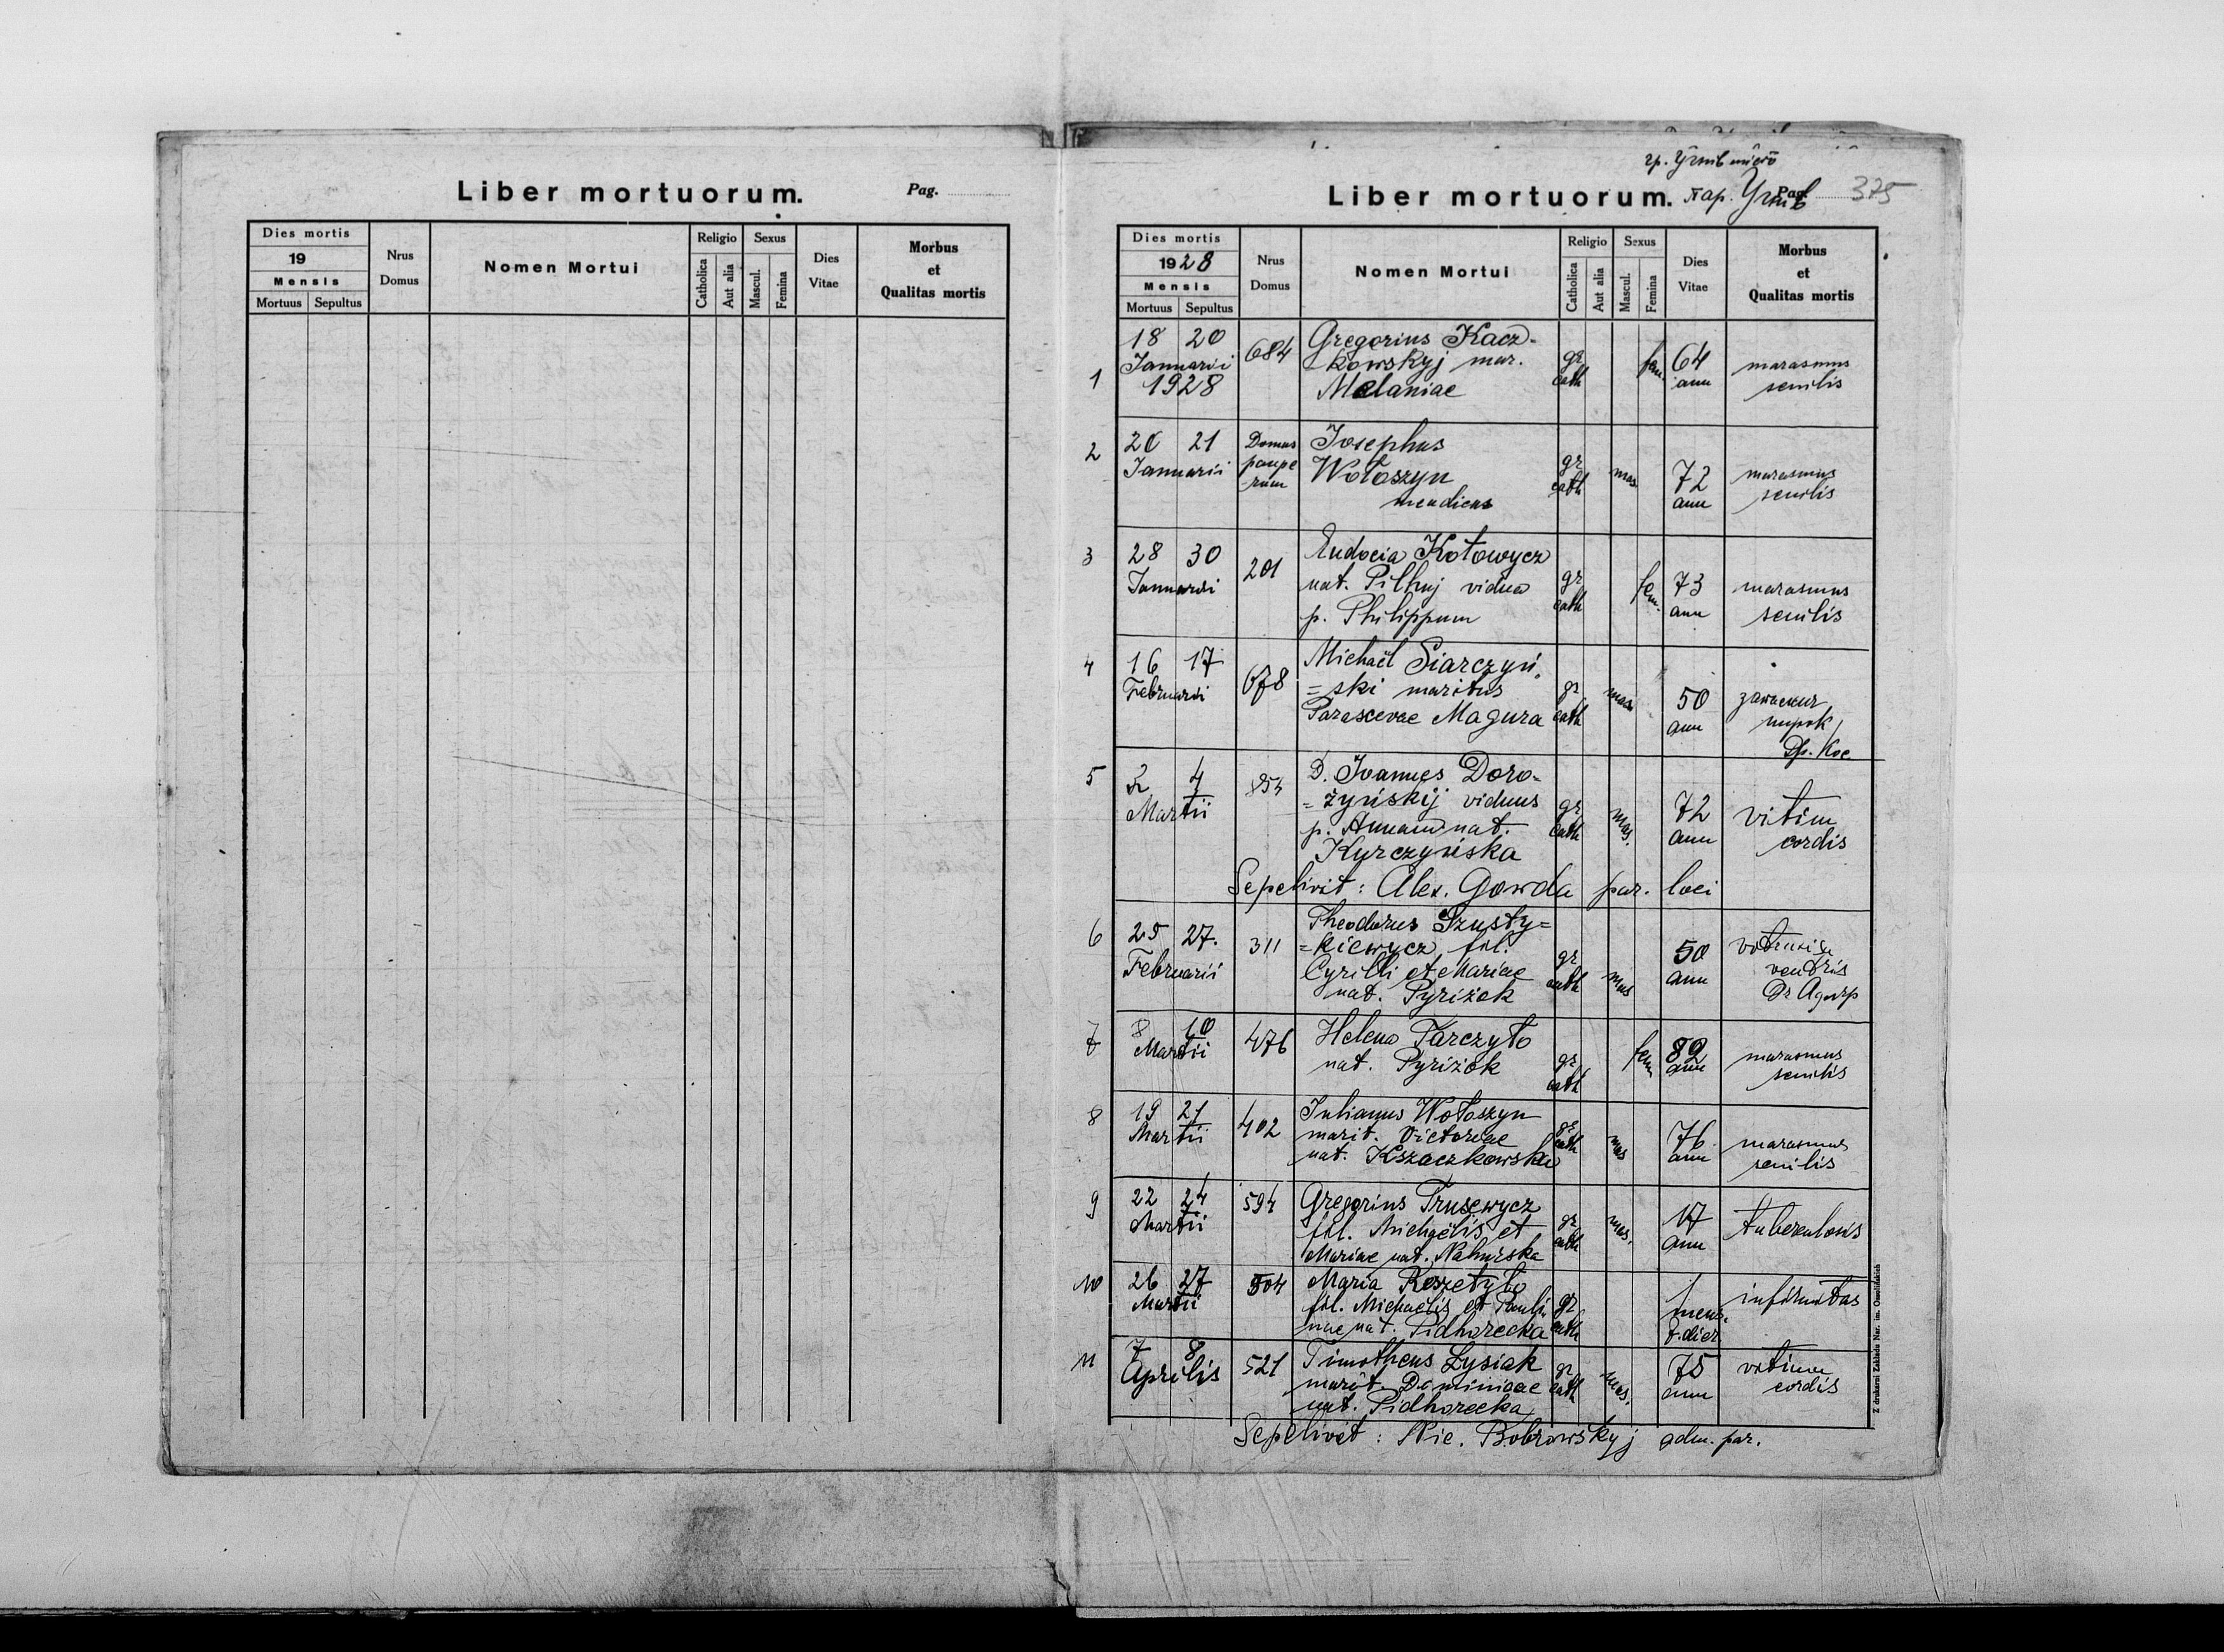 Liber mortuorum.
Pag.
Dies mortis
19
Mensis
Mortuus Sepultus
Nrus Domus
Nomen Mortui
Religio
Catholica
Aut alia
Sexus
Mascul.
Femina
Dies Vitae
Morbus
et
Qualitas mortis
Liber mortuorum.
Pag. 375
Dies mortis
1928
Mensis
Mortuus Sepultus
Nrus Domus
Nomen Mortui
Religio
Catholica
Aut alia
Sexus
Mascul.
Femina
Dies Vitae
Morbus
et
Qualitas mortis
1
18 20
Januarii
1928
684
Gregorius Kacz-
kowskyj mar.
Melaniae
gr
cath
fem.
64
ann
marasmus
senilis
2
20 21
Januarii
Domus
paupe
rum
Josephus
Wołoszyn
mendicus
gr
cath
mas
72
ann
marasmus
senilis
3
28 30
Januarii
201
Eudocia Kotowycz
nat. Pilhuj vidua
p. Philippum
gr
cath
fem.
73
ann
marasmus
senilis
4
16 17
Februarii
678
Michaël Siarczyń
=ski maritus
Parascevae Magura
gr
cath
mas
50
ann
Др. Кос
5
2 4
Martii
853
D. Joannes Doro-
=żyńskij viduus
p. Annam nat.
Kyrczyńska
gr
cath
mas.
72
ann
vitium
cordis
Sepelivit: Alex. Gowda par. loci
6
25 27.
Februarii
311
Theodorus Szusty=
=kiewycz fil.
Cyrilli et Mariae
nat. Pyriżok
gr
cath
mas
50
ann
ventris
Dr
7
8 10
Martii
476
Helena Tarczyło
nat. Pyriżok
gr
cath
fem
82
ann
marasmus
senilis
8
19 21
Martii
402
Julianus Wołoszyn
marit. Victoriae
nat. Kszaczkowska
gr
cath
mas
76
ann
marasmus
senilis
9
22 24
Martii
594
Gregorius Trusewycz
fil. Michaëlis et
Mariae nat. Nahurska
gr
cath
mas.
17
ann
tuberculosis
10
26 27
Martii
504
Maria Koszetyło
fil. Michaelis et Pauli
nae nat. Pidhorecka
gr
cath
1
mens.
7 dier
infirmitas
11
7 8
Aprilis
521
Timotheus Łysiak
marit. Dominicae
nat. Pidhorecka
gr
cath
mas.
75
ann
vitium
cordis
Sepelivit: Nic. Bobrowskyj adm. par.
Z drukarni Zakładu Nar. im. Ossolińskich